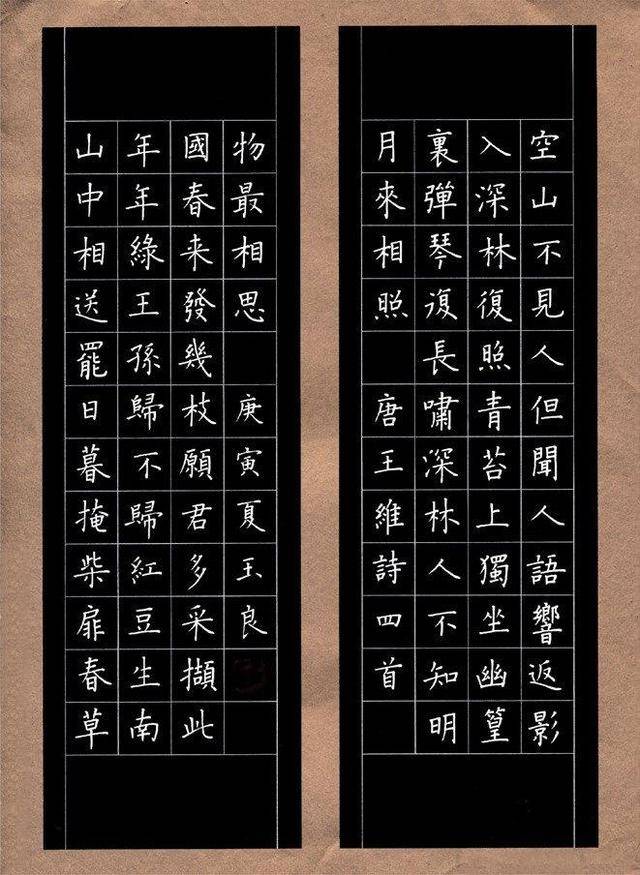 空山不見人但聞人語響返影
入深林復照青苔上獨坐幽篁
裏彈琴復長嘯深林人不知明
月來相照 唐王維詩四首
山中相送罷日暮掩柴扉春草
年年綠王孫歸不歸紅豆生南
國春来發幾枝願君多采擷此
物最相思 庚寅夏玉良